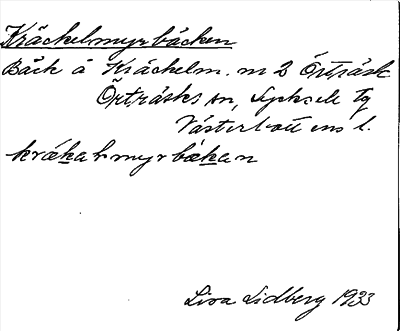 Kräckelmyrbäcken
Bäck å Kräckelm. m 2 Örträsk
Örträsks sn, Lycksele tg
Västerbottens l.
kräkahmyrbäkan
Lisa Lidberg 1933